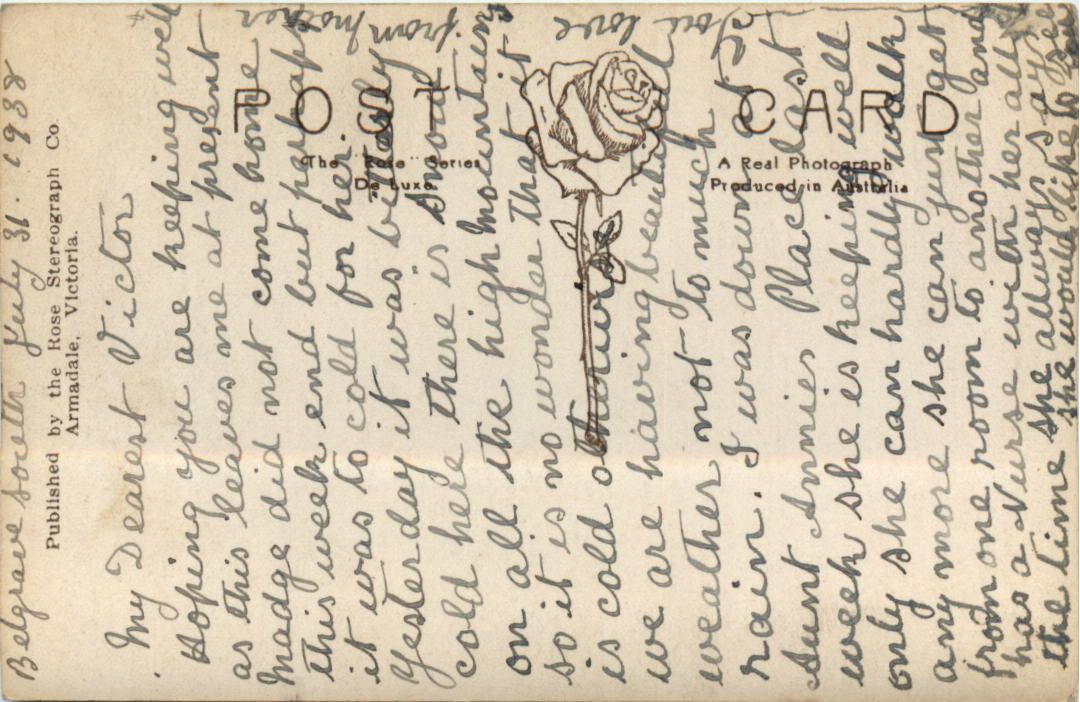 Belgrave South July 31. 1938
Published by the Rose Stereograph Co.
Armadale, Victoria.
POST CARD
The "Rose" Series
De Luxe
A Real Photograph
Produced in Australia
My Dearest Victor
Hoping you are keeping well
as this leaves me at present
Madge did not come home
this week end but perhaps
it was to cold for her.
Yesterday it was bitterly
cold here there is snow
on all the high mountains
so it is no wonder that it
is cold otherwise
we are having beautiful
weather not to much
rain. I was down at
Aunt Annies Place last
week she is keeping well
only she can hardly walk
any more she can just get
from one room to another and
has a Nurse with her all
the time she always says
she would like to see
you love
from mother